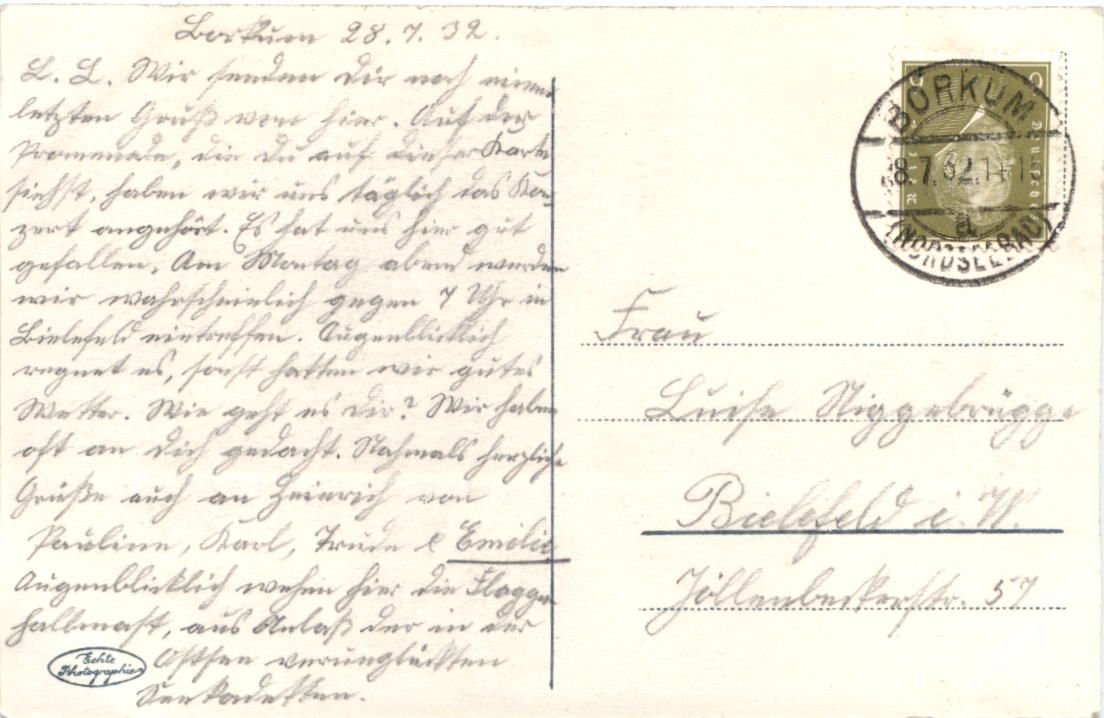 Borkum 28.7.32.
L. L. Wir senden Dir noch einen
letzten Gruß von hier. Auf der
Promenade, die Du auf dieser Karte
siehst, haben wir uns täglich das Kon-
zert angehört. Es hat uns hier gut
gefallen. Am Montag abend werden
wir wahrscheinlich gegen 7 Uhr in
Bielefeld eintreffen. Augenblicklich
regnet es, sonst hatten wir gutes
Wetter. Wie geht es Dir? Wir haben
oft an Dich gedacht. Nochmals herzliche
Grüße auch an Heinrich von
Pauline, Karl, Trude & Emilie
Augenblicklich wehen hier die Flaggen
halbmast, aus Anlaß der in der
Ostsee verunglückten
Seekadetten.
Echte
Photographie
BORKUM
8.7.32.14-15
a
(NORDSEEBAD)
Frau
Luise Niggebrügge
Bielefeld i. W.
Jöllenbeckerstr. 57